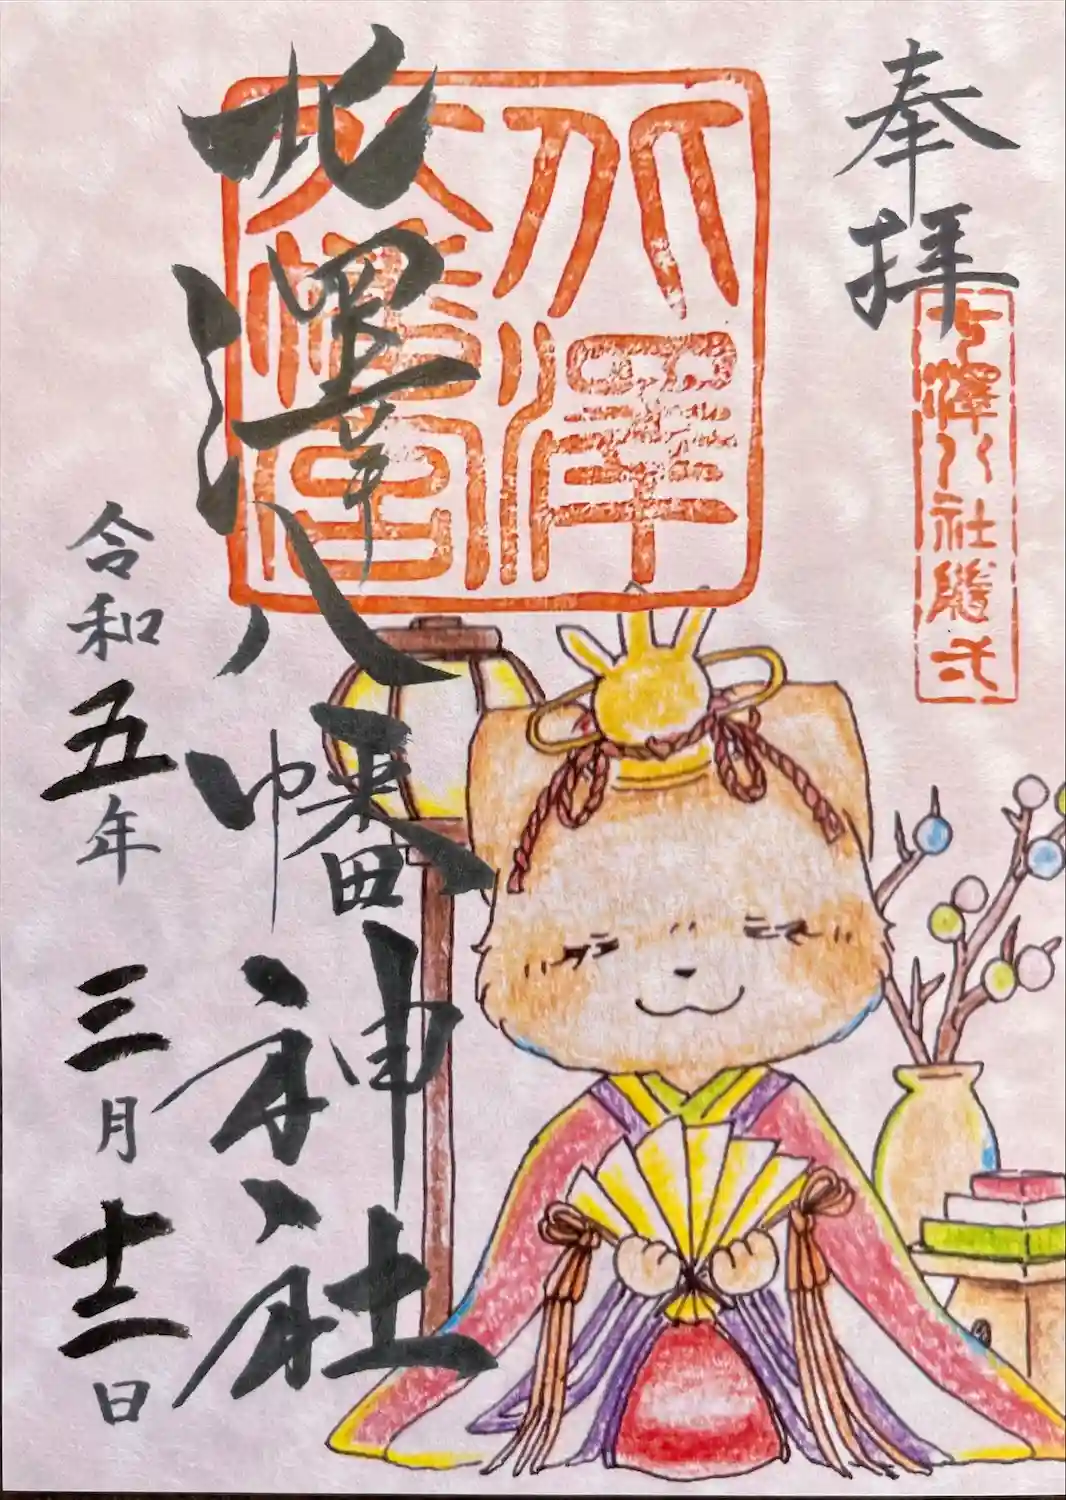 奉拝
七澤八社隨弌
北澤
八幡宮
北澤八幡神社
令和五年三月十二日